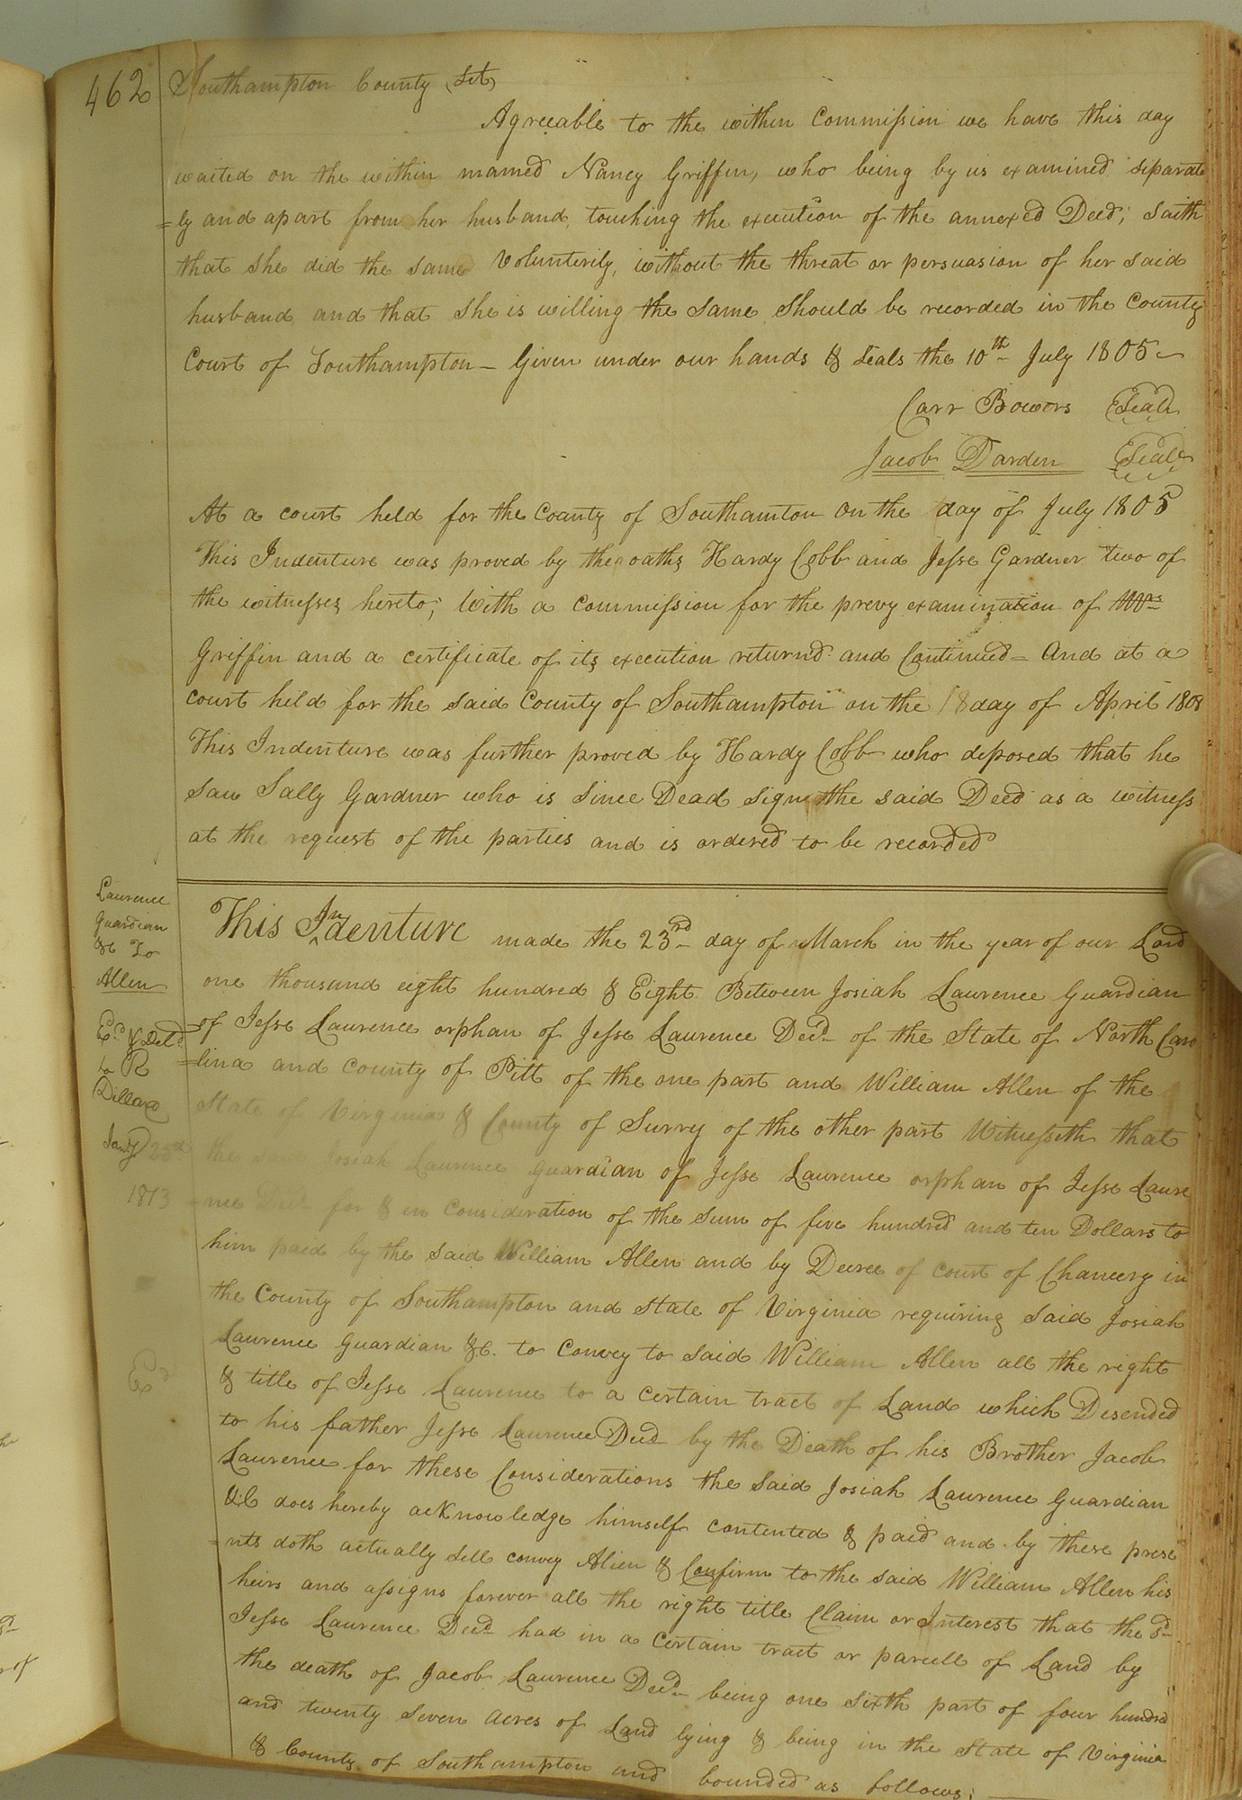 462
Southampton County (Sct)
Agreeable to the within Commission we have this day
waited on the within named Nancy Griffin, who being by us examined separate
=ly and apart from her husband, touching the execution of the annexed Deed; saith
that she did the same Volunterily, without the threat or persuasion of her said
husband and that she is willing the same should be recorded in the County
Court of Southampton – Given under our hands & seals the 10th July 1805 –
Carr Bowers (Seal)
Jacob Darden (Seal)
At a court held for the County of Southamton on the day of July 1805
This Indenture was proved by the oaths Hardy Cobb and Jesse Gardner two of
the witnesses hereto; With a commission for the prevy examination of Mrs
Griffin and a certificate of its execution returnd and Continued = And at a
court held for the said County of Southampton on the 18 day of April 1808
This Indenture was further proved by Hardy Cobb who deposed that he
saw Sally Gardner who is since Dead sign the said Deed as a witness
at the request of the parties and is ordered to be recorded
Laurence
Guardian
&c To
Allen
Exd & Deld
to R
Dillard
Jany 23rd
1813
Exd
This Indenture made the 23rd day of March in the year of our Lord
one thousand eight hundred & Eight Between Josiah Laurence Guardian
of Jesse Laurence orphan of Jesse Laurence Decd of the State of North Caro
=lina and County of Pitt of the one part and William Allen of the
State of Virginia & County of Surry of the other part Witnesseth that
the said Josiah Laurence guardian of Jesse Laurence orphan of Jesse Laure
=nce Decd for & in Consideration of the sum of five hundred and ten Dollars to
him paid by the said William Allen and by Decree of court of Chancery in
the County of Southampton and State of Virginia requiring said Josiah
Laurence Guardian &c. to Convey to said William Allen all the right
& title of Jesse Laurence to a certain tract of Land which Desended
to his father Jesse Laurence Decd by the Death of his Brother Jacob
Laurence for these Considerations the said Josiah Laurence Guardian
&c does hereby acKnowledge himself contented & paid and by these prese
=nts doth actually sell convey Alien & Confirm to the said William Allen his
heirs and assigns forever all the right title Claim or Interest that the sd
Jesse Laurence Decd had in a certain tract or parcell of Land by
the death of Jacob Laurence Decd being one sixth part of four hundred
and twenty seven acres of Land lying & being in the State of Virginia
& County of Southampton and bounded as follows;